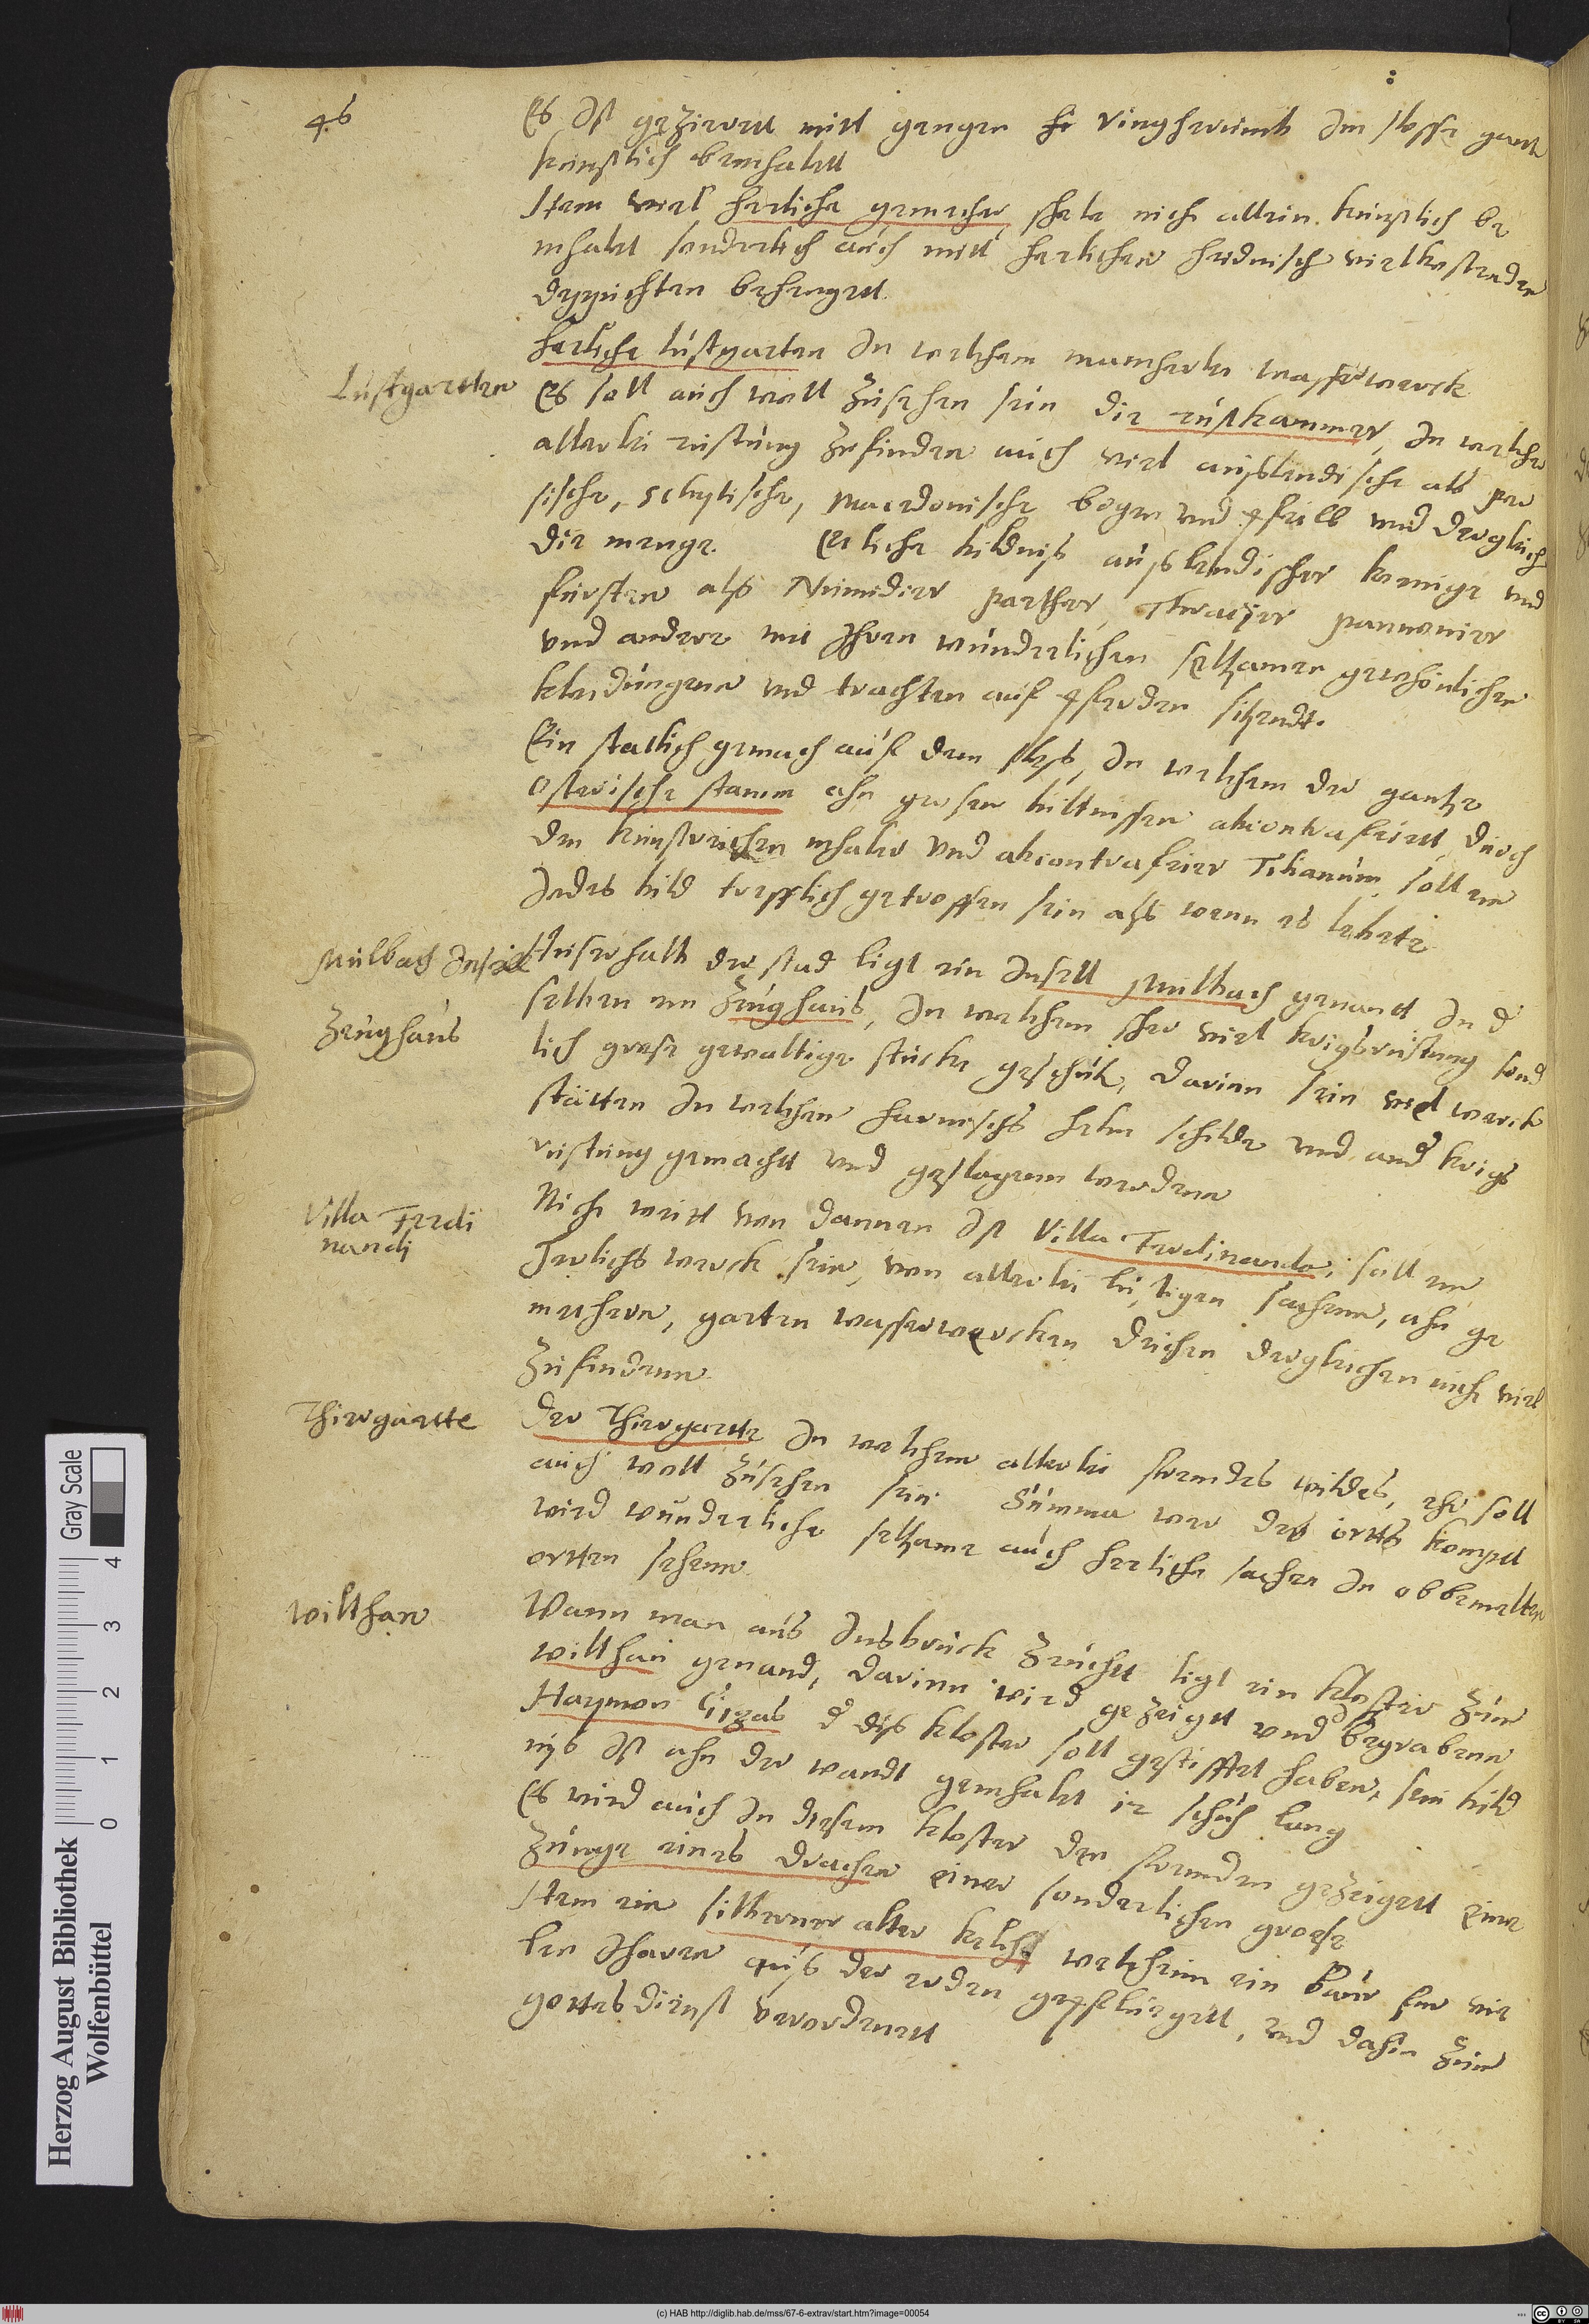 46
Es Ist gezieret mitt gengen so ringherümb Im slosse gantz
kunstlich bemhalett
Item viel herliche gemecher, sehele nicht allein kunstlich be
mhalet sonderlich auch mitt herlichen heidnisch vielkostenden
deppichten behengett.
Lustgartten
herliche lustgarten In welchem mancherlei wasserwerck
Es soll auch woll zusehen sein die rustkammer, In welcher
allerlei rustung zufinden auch viel auslendische als per
sische, schytische, Macedonische bogen und pfeill und dergleich
die menge. Etliche bildnis auslendischer könnige und
fursten als Numidier parther, Thracier pannonier
und andere mit Ihren wunderlichen seltzamen gewhönlichen
kleidungenn und trachten auf pferden sitzendt.
Ein statlich gemach auf dem slos, In welchem der gantze
osterische stamm ahn grosen bildtnissen abcontrafeiett durch
den kunstreichen mhaler und abcontrafeier Titianum, soll ein
Jedes bild trefflich getroffen sein als wenn es lebete
Mulbach Insell
Auserhalb der stad ligt ein Insell Mulbach genant In d
selben ein zeughaus, In welchem seher viel krigsrustung sond
Zeughaus
lich grose gewaltige stucke geschutz, darinn sein viel werck
stätten In welchen harnisch helm schilde und and krigs
rustung gemacht und geslagenn werdenn
Villa Ferdi
nandi
Nicht weitt von dannen Ist Villa Ferdinanda, soll ein
herlichs werck sein, von allerlei lustigen sachenn, ahn ge
mechern, garten wasserwercken teichen dergleichen nicht viel
zufindenn
Thiergartte
Der Thiergartte In welchem allerlei fremdes wildes, ehr soll
auch woll zusehen sein Summa wer des ortts kompt
wird wunderliche seltzame auch herliche sachen In obbemelten
ortten sehenn.
Wilthan
Wann man aus Insbruck zeuchtt ligt ein kloster zum
wilthan genand, darinn wird gezeigett und begrabenn
Haymon Gigas d dis kloster soll gestifftet haben, sein bild
nis Ist ahn der wandt gemhalet 12 schuh lang
Es wird auch In diesem kloster den fremden gezeigett eine
Zunge eines drachen einer sonderlichen grosse
Item ein silberner alter kelch welchenn ein baur fur vie
len Iharen aus der erden gepflueget, und dahin zum
gottesdienst verordenett
Herzog August Bibliothek
Wolfenbüttel
Gray Scale
0 1 2 3 4
(c) HAB http://diglib.hab.de/mss/67-6-extrav/start.htm?image=00054